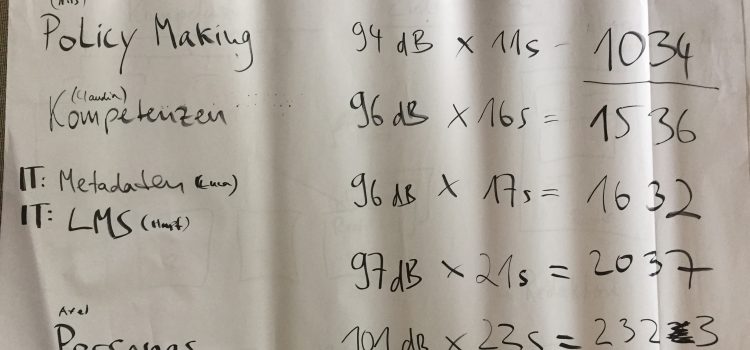 Policy Making 94 dB x 11s - 1034
(Claudia)
Kompetenzen 96 dB x 16s = 1536
IT: Metadaten (Luca) 96 dB x 17s = 1632
IT: LMS
97 dB x 21s = 2037
Axel
Personas 101 dB x 23s = 2323